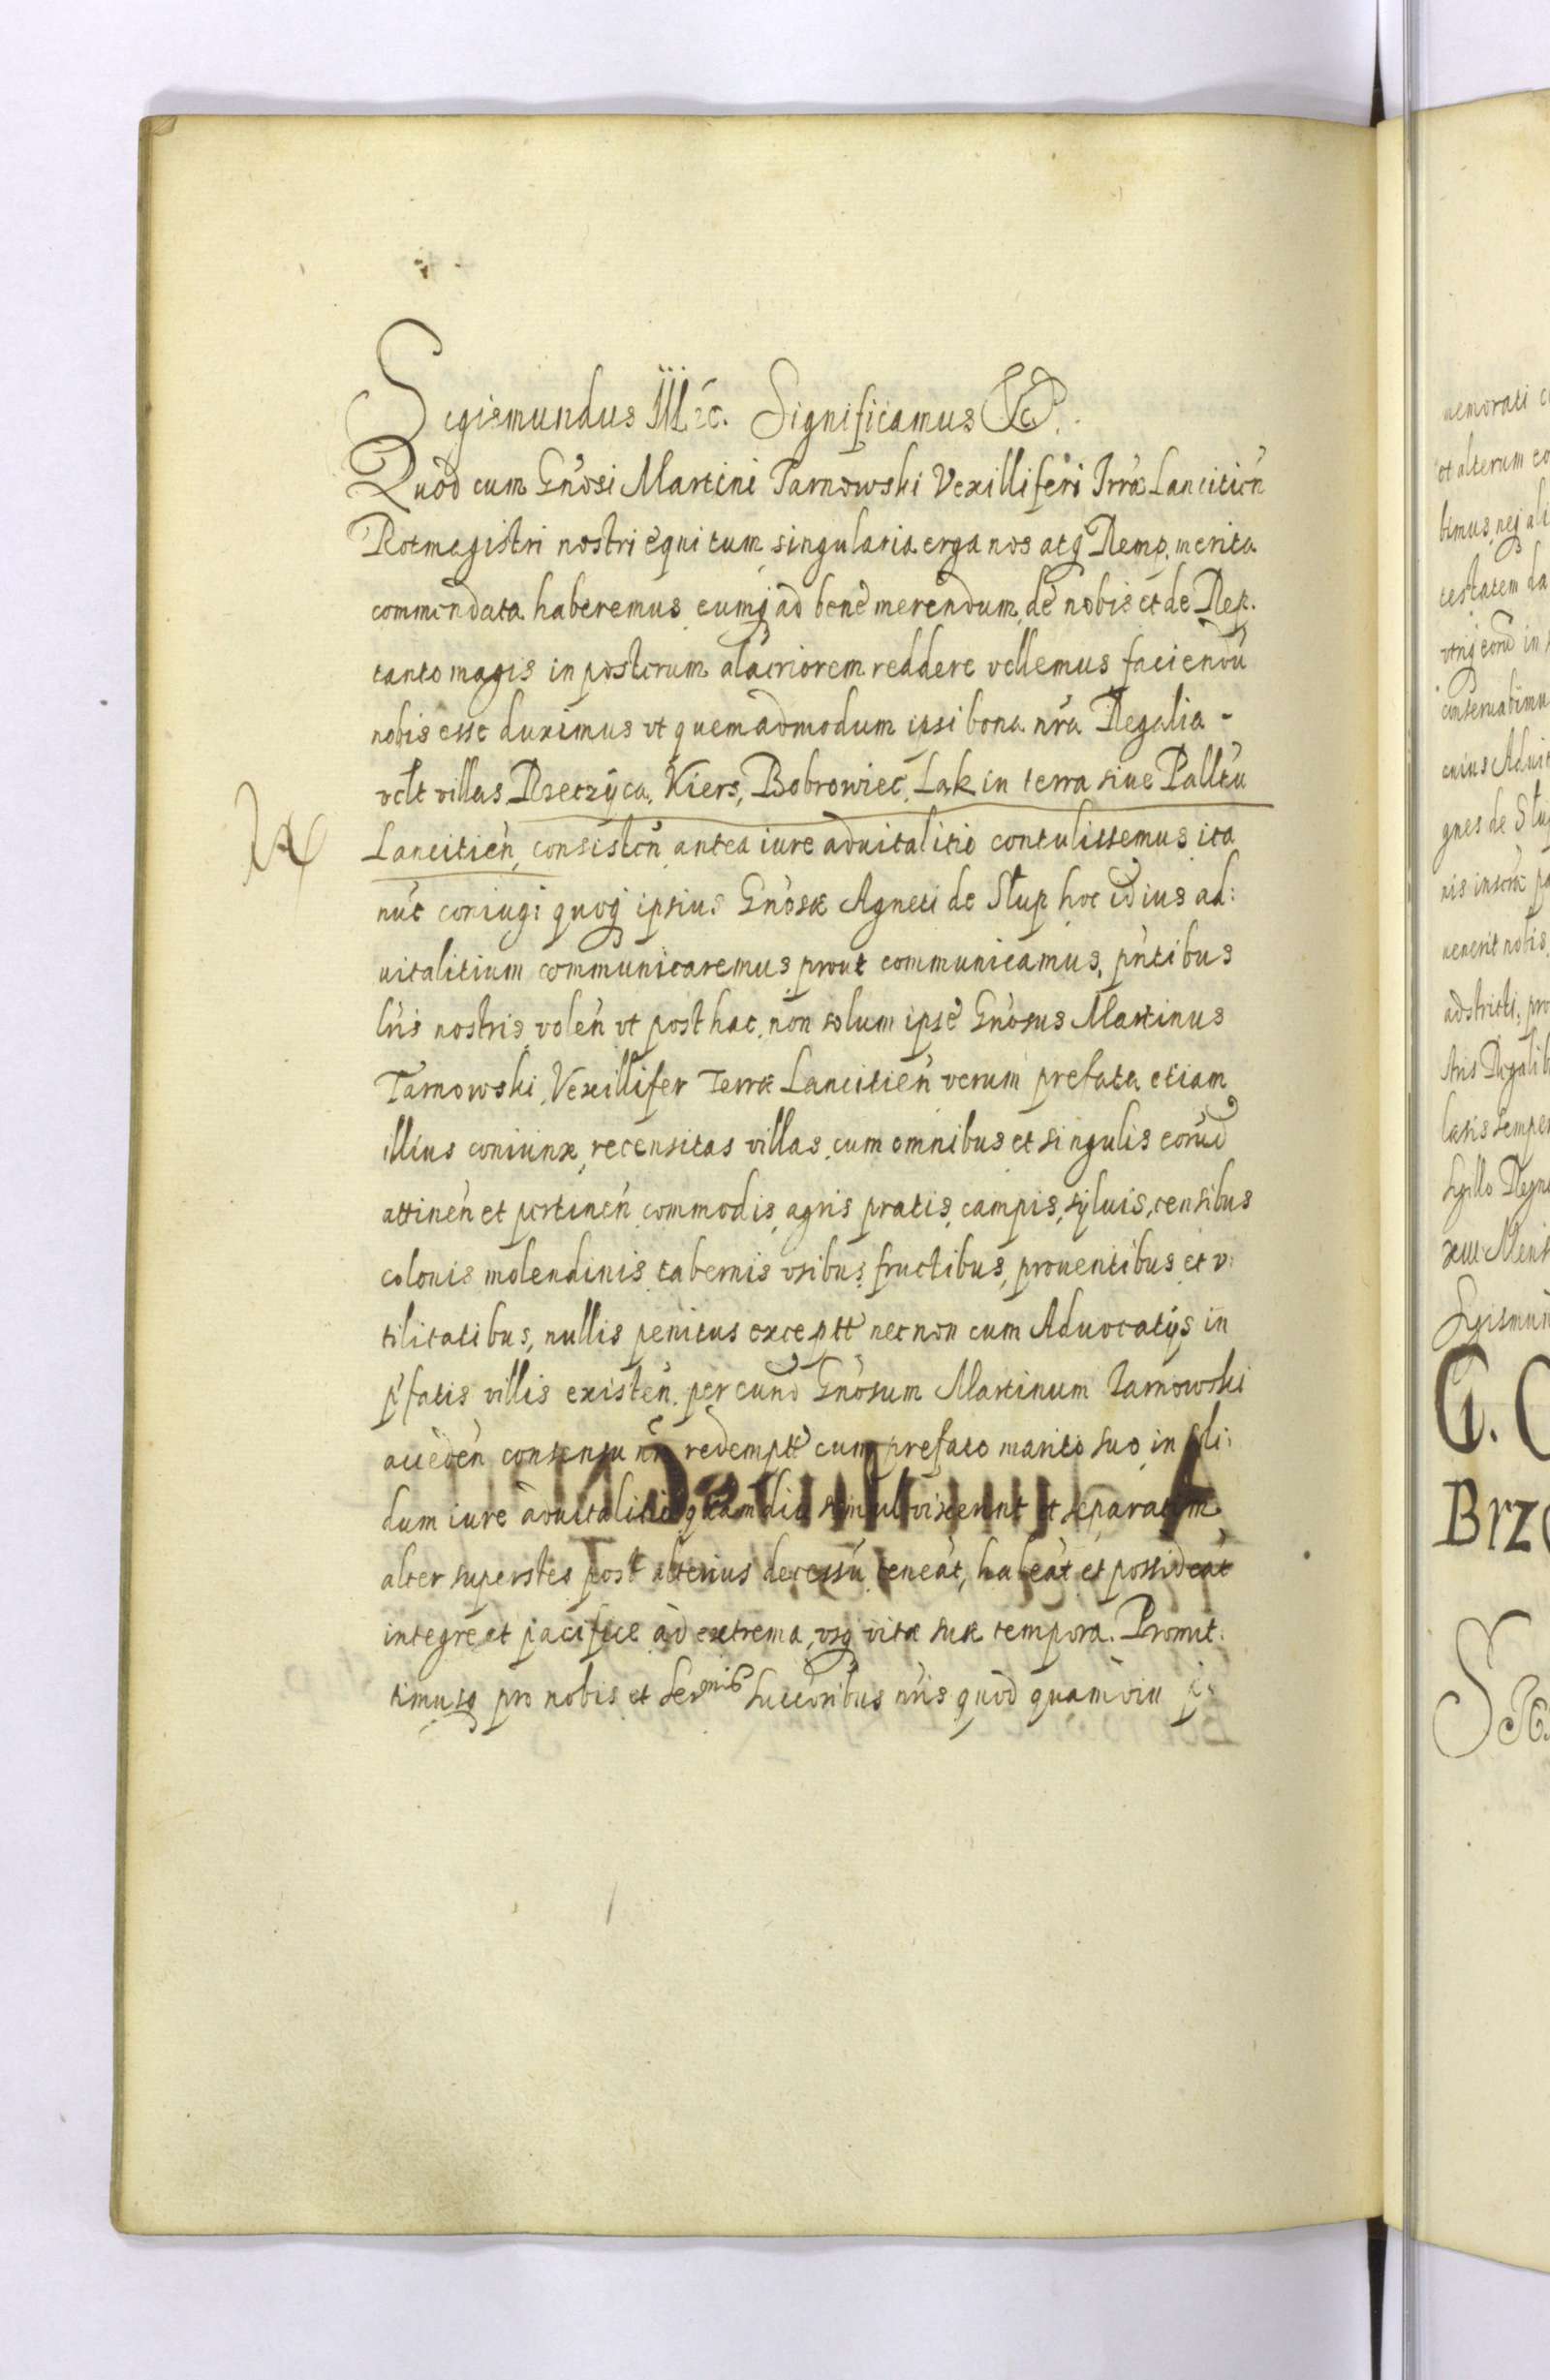 Sigismundus III ec. Significamus &c.
Quod cum Gnosi Martini Tarnowski Vexilliferi Trrae Lancitien̄
Rotmagistri nostri equitum singularia erga nos atq Remp. merita
commendata haberemus eumq ad bene merendum de nobis et de Rep.
tanto magis in posterum alacriorem reddere vellemus faciendū
nobis esse duximus vt quemadmodum ipsi bona nrā Regalia -
vclt villas Rzeczyca, Kiers, Bobrowiec, Lak in terra siue Palltu
Lancitień consisten̄ antea iure aduitalitio contulissemus ita
nūc coniugi quoq ipsius Gnosae Agneti de Słup hoc id ius ad:
uitalitium communicaremus prout communicamus, pn̄tibus
lris nostris volen̄ vt post hac non solum ipse Gnosus Martinus
Tarnowski Vexillifer Terrae Lancitien̄ verum prefata etiam
illius coniunx, recensitas villas cum omnibus et singulis eorūd
attinen̄ et pertinen̄ commodis agris pratis campis, syluis, censibus
colonis molendinis tabernis vsibus fructibus, prouentibus et v:
tilitatibus, nullis penitus exceptt nec non cum Aduocatÿs in
pfatis villis existen̄ per eund Gnosum Martinum Tarnowski
acceden̄ consensu nro redemptt cum prefato marito suo in soli:
dum iure aduitalitio quamdiu simul vixerint et separatim
alter superstes post alterius decessū teneāt, habeāt et possideāt
integre et pacifice ad extrema vsq vitae suae tempora. Promit:
timusq pro nobis et Sermis Succoribus nris quod quamdiu
memorati
et alterum
bimus neq ali
testatem da
vtriq eord in
conseruabimu
cuius Aduit
gnes de Słup
nis inscrae
uenerit nobis
adstricti, pro
stris Regalib
latis semper
Sigillo Regn
xiii Mens
Sigismun
G. C
Brze